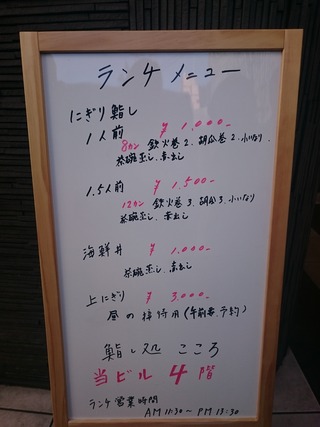 ランチメニュー
にぎり鮨し
1人前 ¥1,000-
8カン 鉄火巻2、胡瓜巻2、小いなり
茶碗蒸し、赤出し
1.5人前 ¥1,500-
12カン 鉄火巻3、胡瓜3、小いなり
茶碗蒸し、赤出し
海鮮丼 ¥1,000-
茶碗蒸し、赤出し
上にぎり ¥3,000-
昼の接待用(午前要予約)
鮨し処 こころ
当ビル4階
ランチ営業時間
AM 11:30 ~ PM 13:30